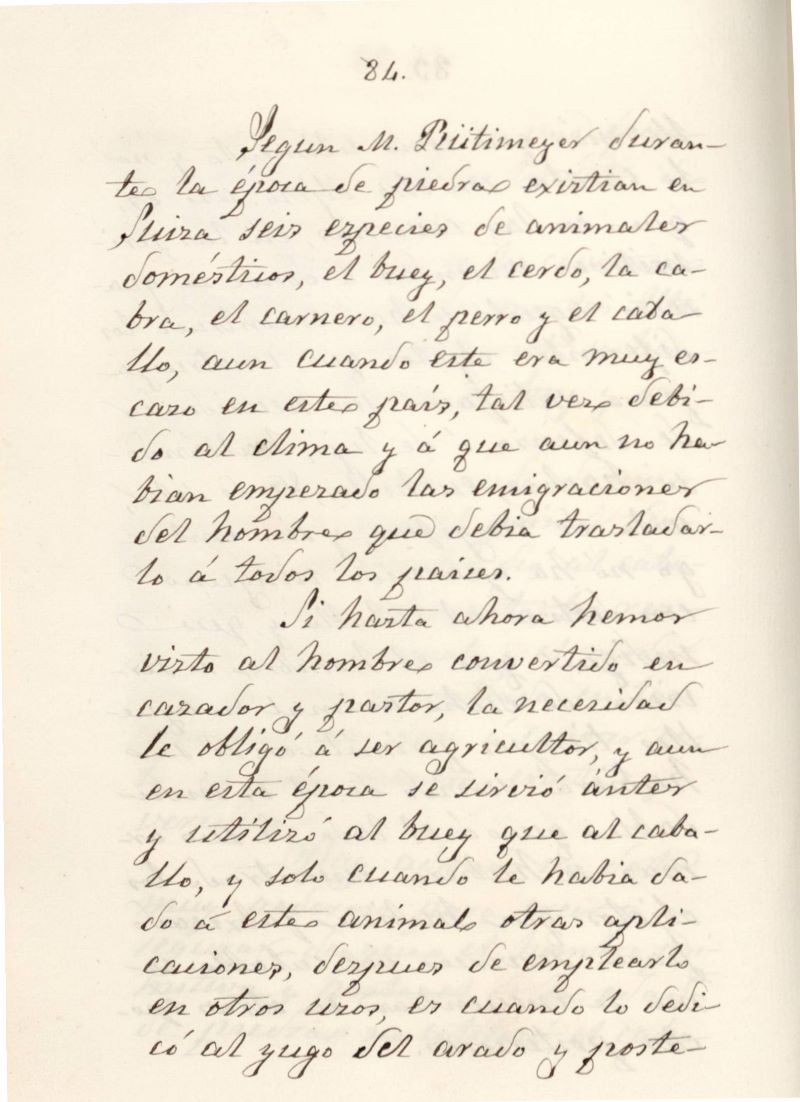 84.
Segun M. Rütimeyer duran-
te la época de piedra existian en
Suiza seis especies de animales
domésticos, el buey, el cerdo, la ca-
bra, el carnero, el perro y el caba-
llo, aun cuando este era muy es-
caso en este país, tal vez debi-
do al clima y á que aun no ha-
bian empezado las emigraciones
del hombre que debia trasladar-
lo á todos los paises.
Si hasta ahora hemos
visto al hombre convertido en
cazador y pastor, la necesidad
le obligó á ser agricultor, y aun
en esta época se sirvió ántes
y utilizó al buey que al caba-
llo, y solo cuando le habia da-
do á este animal otras apli-
caciones, despues de emplearlo
en otros usos, es cuando lo dedi-
có al yugo del arado y poste-